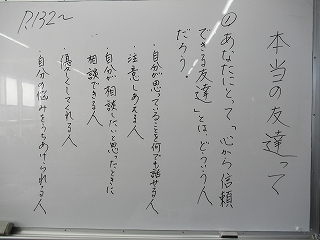 本当の友達って
①あなたにとって「心から信頼
できる友達」とは、どういう人
だろう
・自分が思っていることを何でも話せる人
・注意しあえる人
・自分が相談したいと思ったときに
相談できる人
・優しくしてくれる人
・自分の悩みをうちあけられる人
P.132～